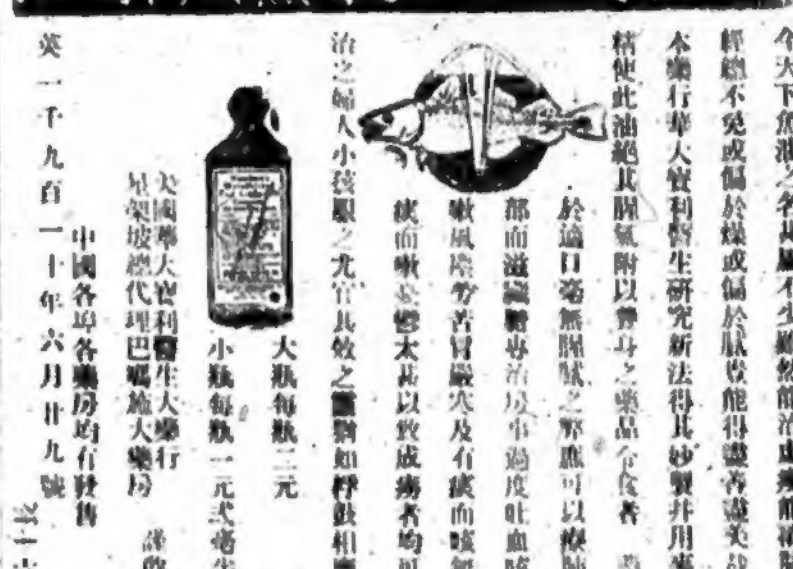 今天下魚油之名其屬不少雖然能治虛癆能補肺
經總不免或偏於燥或偏於膩豈能得盡善盡美哉
本藥行華大寶利醫生研究新法得其妙製幷用麥
精使此油絕其腥氣附以養身之藥品令食者
於適口毫無腥膩之弊應可以療肺
部而滋專治房事過度吐血咳
嗽風勞苦冒嚴寒及有痰而咳無
痰而嗽鬱太甚以致成癆者均可
治之婦人小孩服之尤宜其效之猶如桴鼓相應
大瓶每瓶二元
小瓶每瓶一元弍毫
美國華大寶利醫生大藥行
星架坡總代理巴施大藥房 謹啟
中國各埠各藥房均有發售
英一千九百一十年六月廿九號